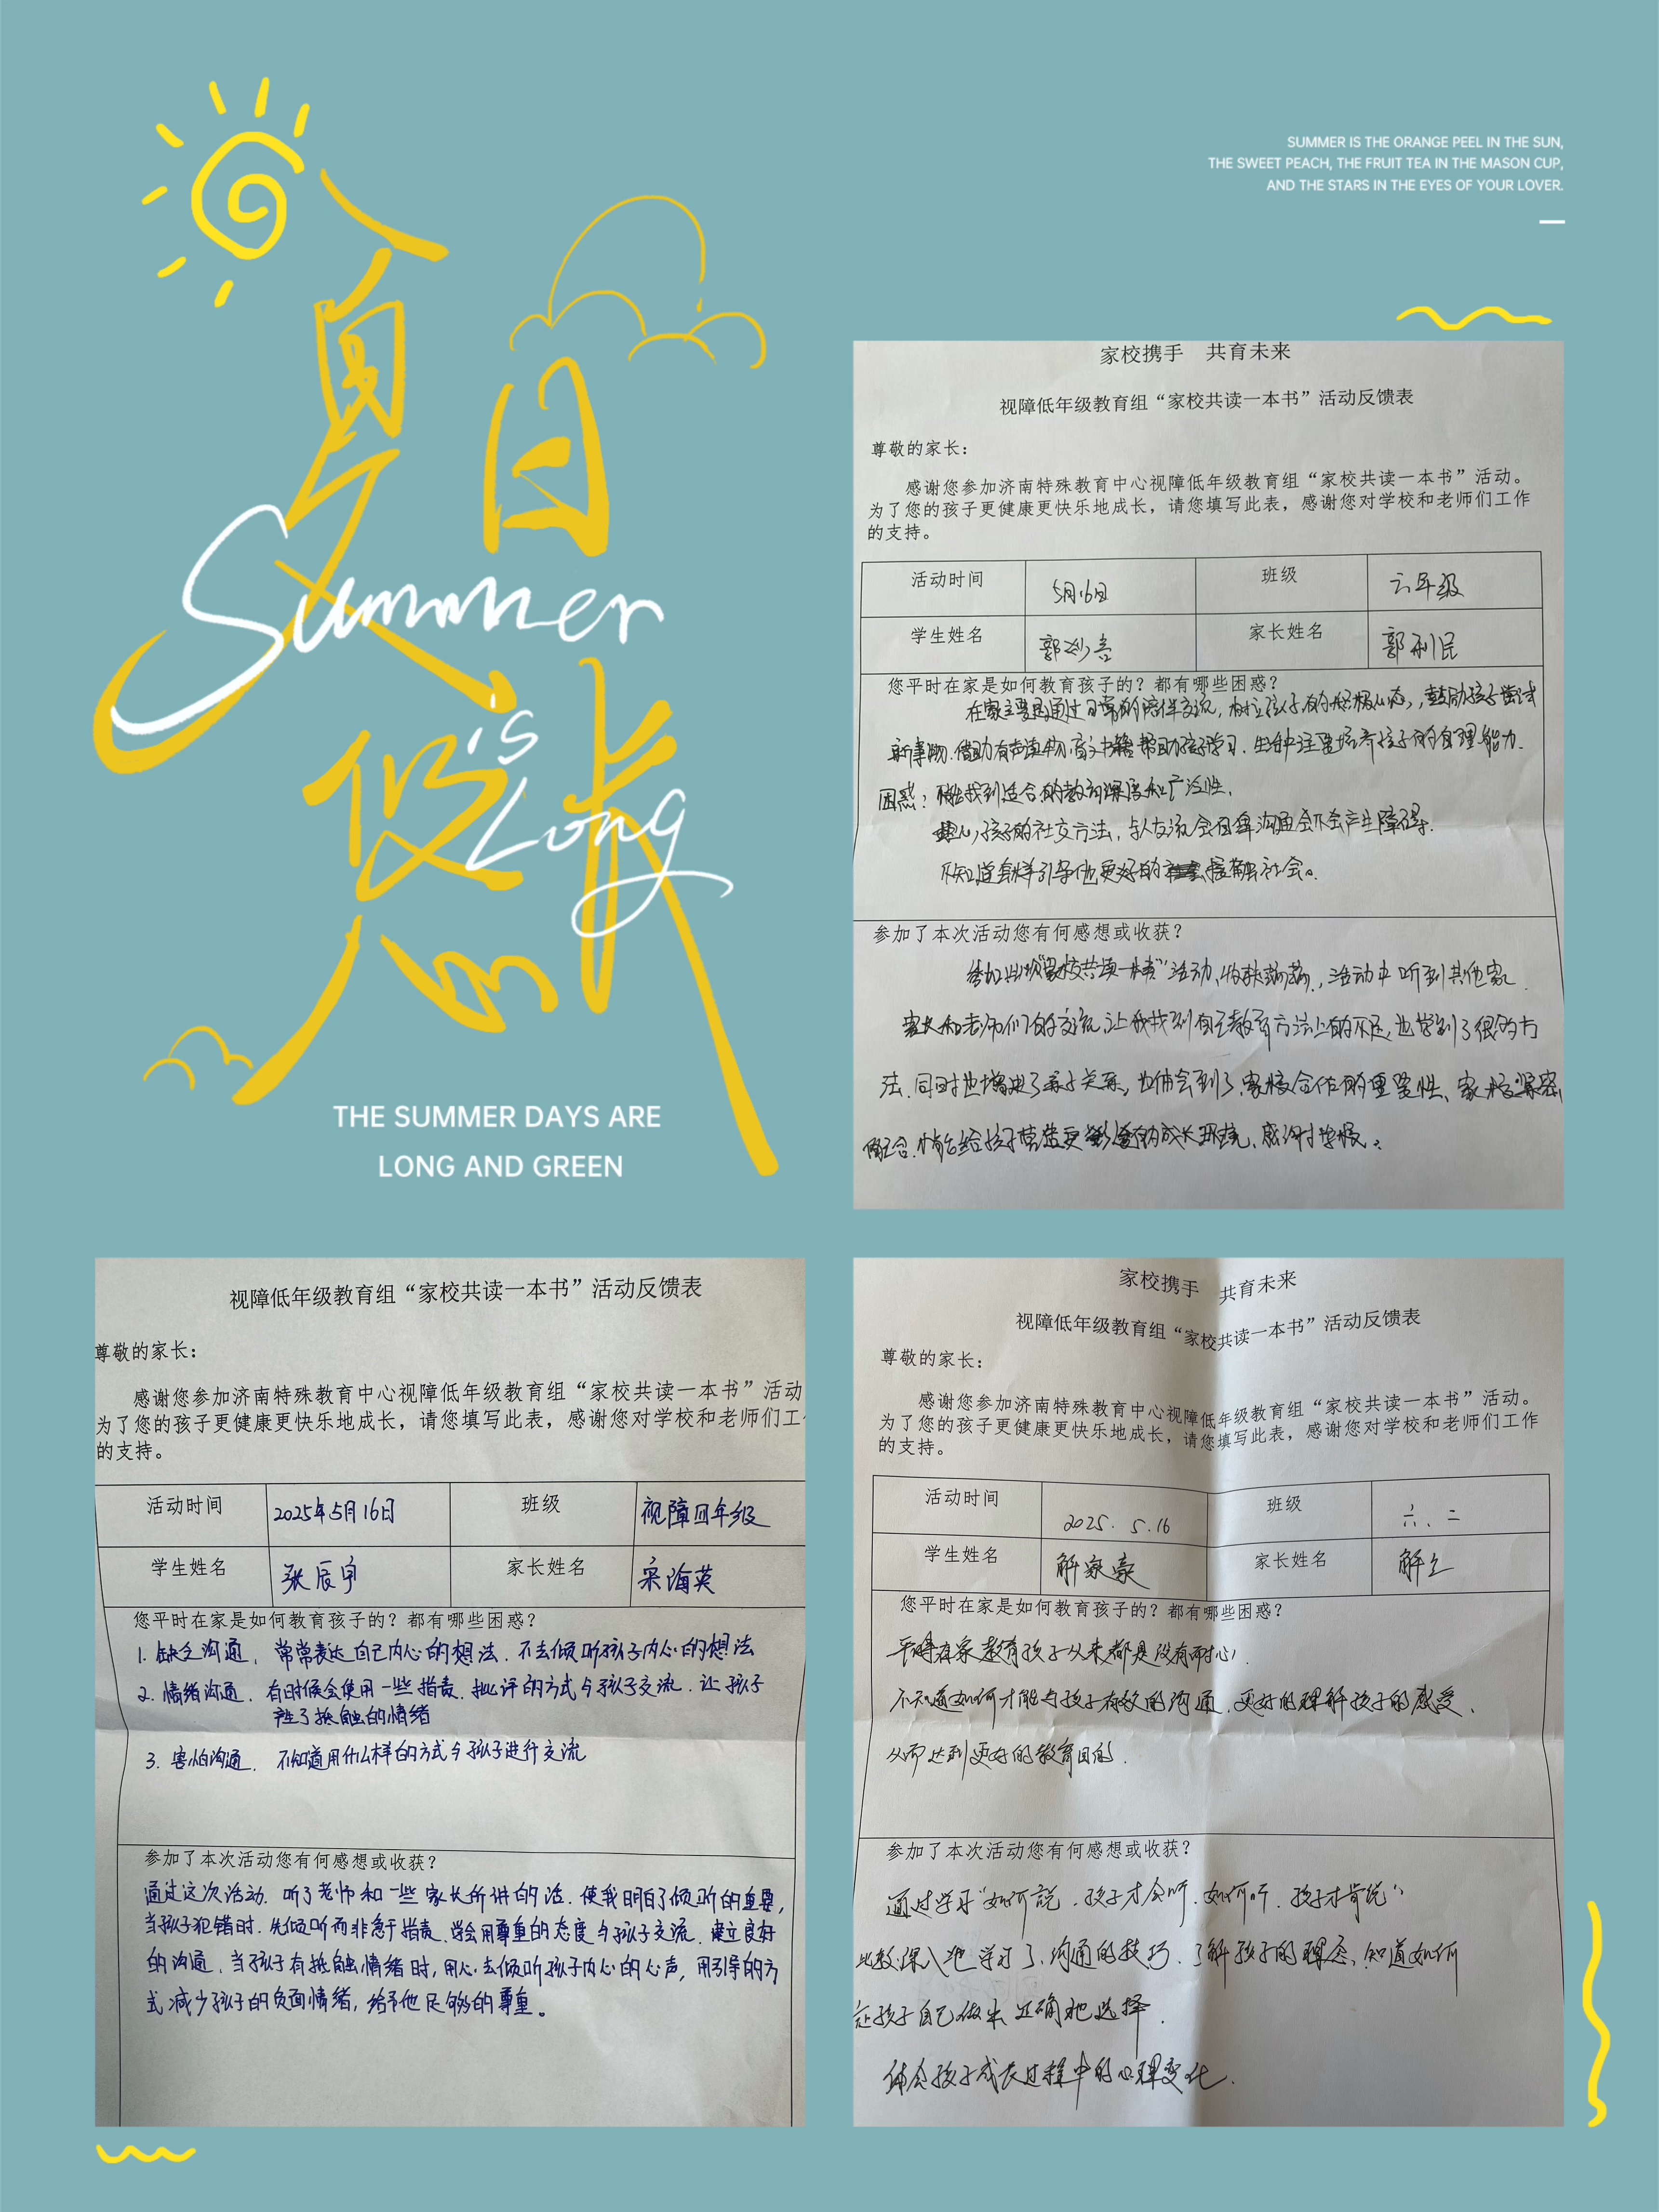 夏日悠长
Summer
is
Long
THE SUMMER DAYS ARE
LONG AND GREEN
SUMMER IS THE ORANGE PEEL IN THE SUN,
THE SWEET PEACH, THE FRUIT TEA IN THE MASON CUP,
AND THE STARS IN THE EYES OF YOUR LOVER.
家校携手 共育未来
视障低年级教育组“家校共读一本书”活动反馈表
尊敬的家长：
感谢您参加济南特殊教育中心视障低年级教育组“家校共读一本书”活动。
为了您的孩子更健康更快乐地成长，请您填写此表，感谢您对学校和老师们工作
的支持。
活动时间 5月16日 班级 六年级
学生姓名 郭 家长姓名 郭利民
您平时在家是如何教育孩子的？都有哪些困惑？
在家主要是通过日常的陪伴交流，树立孩子的积极心态，鼓励孩子尝试
新事物.借助有声读物盲文书籍帮助孩子学习.生活中注重培养孩子的自理能力.
困惑：不能找到适合的教育深度和广泛性.
担心孩子的社交方法，与人交流会因为沟通会不会产生障碍.
不知道怎样引导他更好的接触社会。
参加了本次活动您有何感想或收获？
参加此次“家校共读一本书”活动,收获满满，活动中听到其他家
长和老师们的交流,让我找到自己教育方法上的不足,也学到了很多方
法.同时也增进了亲子关系，也体会到了家校合作的重要性、家校紧密
配合.才能给孩子营造更的成长环境.感谢学校。
视障低年级教育组“家校共读一本书”活动反馈表
尊敬的家长：
感谢您参加济南特殊教育中心视障低年级教育组“家校共读一本书”活动
为了您的孩子更健康更快乐地成长，请您填写此表，感谢您对学校和老师们工
的支持。
活动时间 2025年5月16日 班级 视障四年级
学生姓名 张辰宇 家长姓名 宋海英
您平时在家是如何教育孩子的？都有哪些困惑？
1. 缺乏沟通，常常表达自己内心的想法.不去倾听孩子内心的想法
2. 情绪沟通.有时候会使用一些指责.批评的方式与孩子交流.让孩子
产生了抵触的情绪
3. 害怕沟通.不知道用什么样的方式与孩子进行交流
参加了本次活动您有何感想或收获？
通过这次活动.听了老师和一些家长所讲的话.使我明白了倾听的重要,
当孩子犯错时.先倾听而非急于指责.学会用尊重的态度与孩子交流.建立良好
的沟通.当孩子有抵触情绪时,用心去倾听孩子内心的心声,用引导的方
式减少孩子的负面情绪,给予他足够的尊重。
家校携手 共育未来
视障低年级教育组“家校共读一本书”活动反馈表
尊敬的家长：
感谢您参加济南特殊教育中心视障低年级教育组“家校共读一本书”活动。
为了您的孩子更健康更快乐地成长，请您填写此表，感谢您对学校和老师们工作
的支持。
活动时间 2025. 5.16 班级 六、二
学生姓名 解家豪 家长姓名 解立
您平时在家是如何教育孩子的？都有哪些困惑？
平时在家教育孩子从来都是没有耐心,
不知道如何才能与孩子有效的沟通.更好的理解孩子的感受、
从而达到更好的教育目的.
参加了本次活动您有何感想或收获？
通过学习“如何说.孩子才会听.如何听.孩子才肯说”
比较深入地学习了沟通的技巧.了解孩子的、知道如何
让孩子自己做出正确地选择.
体会孩子成长过程中的心理变化.